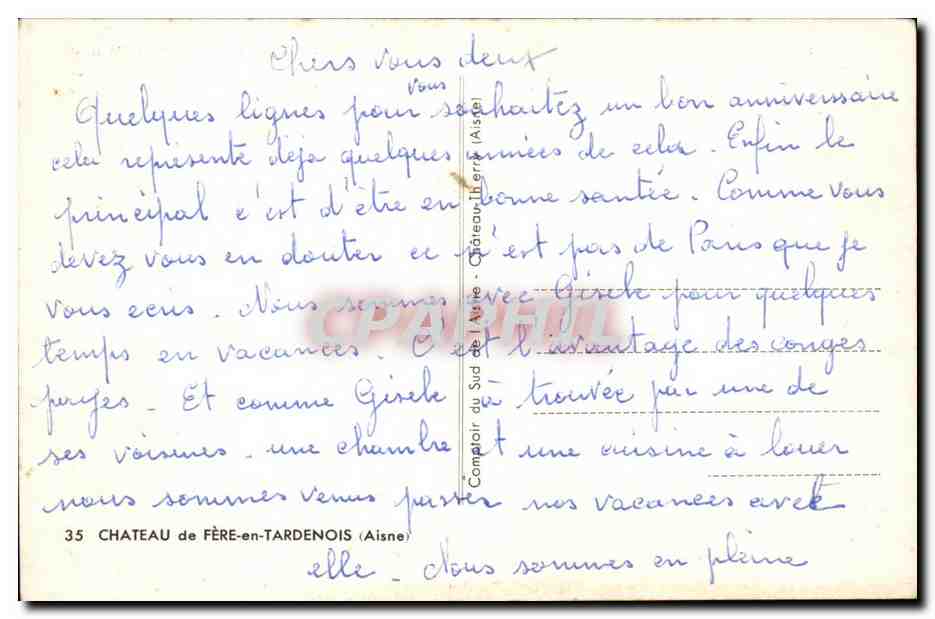 Chers vous deux
vous
Quelques lignes pour souhaitez un bon anniverssaire
cela représente déja quelques années de cela. Enfin le
principal c'est d'être en bonne santée. Comme vous
devez vous en douter ce n'est pas de Paris que je
vous ecris. Nous sommes avec Gisele pour quelques
temps en vacances. C'est l'avantage des conges
payes - Et comme Gisele à trouvée par une de
ses voisines une chambre et une cuisine à louer
nous sommes venus passer nos vacances avec
elle - Nous sommes en pleine
35 CHATEAU de FÈRE-en-TARDENOIS (Aisne)
Comptoir du Sud de l'Aisne - Château-Thierry (Aisne)
CPARHUL